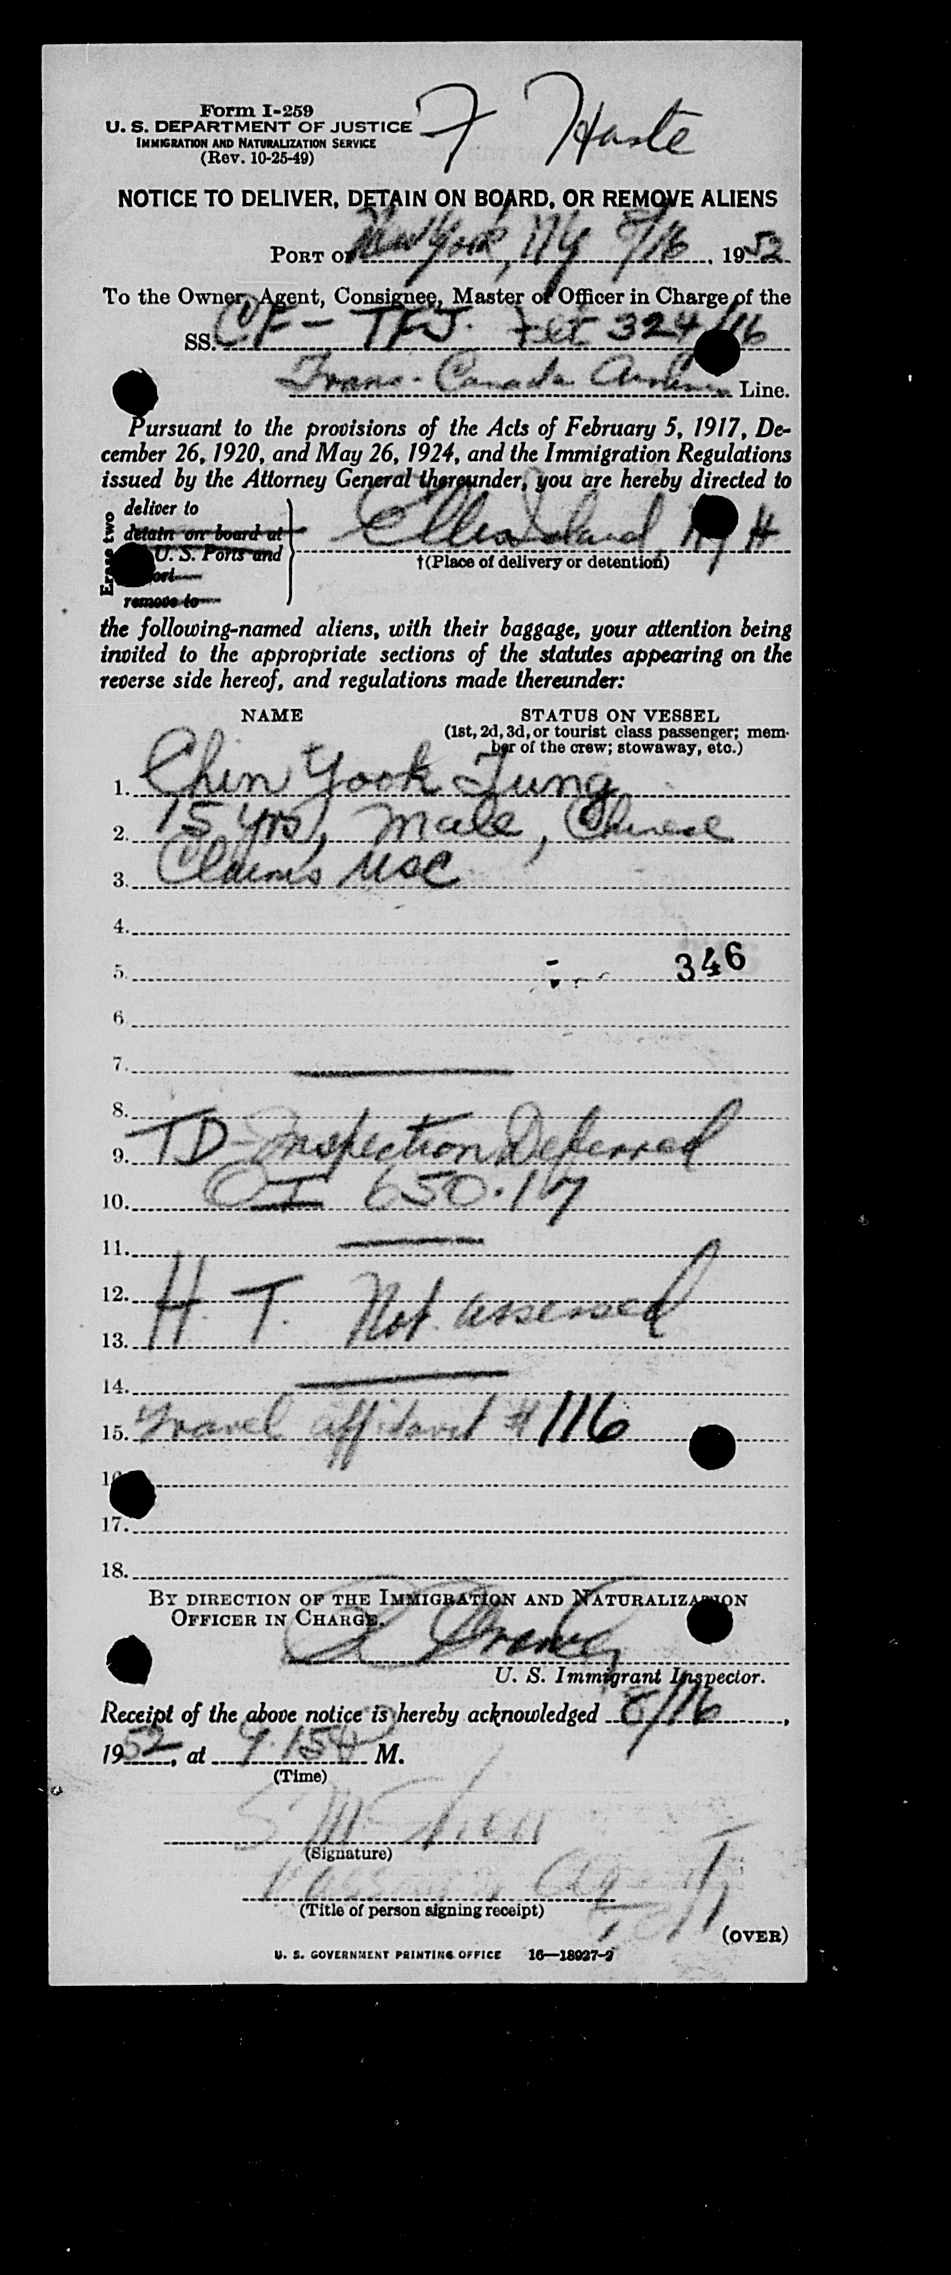 Form I-259
U. S. DEPARTMENT OF JUSTICE
IMMIGRATION AND NATURALIZATION SERVICE
(Rev. 10-25-49)
F Haste
NOTICE TO DELIVER, DETAIN ON BOARD, OR REMOVE ALIENS
PORT OF New York, NY 8/16, 1952
To the Owner, Agent, Consignee, Master or Officer in Charge of the
SS. CF-TFJ. Flt 324/16
Trans-Canada Airlines Line.
Pursuant to the provisions of the Acts of February 5, 1917, De-
cember 26, 1920, and May 26, 1924, and the Immigration Regulations
issued by the Attorney General thereunder, you are hereby directed to
Erase two
deliver to
detain on board at
U. S. Ports and
remove to
Ellis Island NYH
†(Place of delivery or detention)
the following-named aliens, with their baggage, your attention being
invited to the appropriate sections of the statutes appearing on the
reverse side hereof, and regulations made thereunder:
NAME STATUS ON VESSEL
(1st, 2d, 3d, or tourist class passenger; mem-
ber of the crew; stowaway, etc.)
1. Chin Yook Jung
2. 15 yrs, male, Chinese
3. Claims USC
4.
5. 346
6.
7.
8.
9. TD-Inspection Deferred
10. OI 650.17
11.
12. H. T. Not assessed
13.
14.
15. Travel affidavit #116
16.
17.
18.
BY DIRECTION OF THE IMMIGRATION AND NATURALIZATION
OFFICER IN CHARGE.
U. S. Immigrant Inspector.
Receipt of the above notice is hereby acknowledged 8/16,
1952, at 9.15 M.
(Time)
(Signature)
Passenger Agent
(Title of person signing receipt)
(OVER)
U. S. GOVERNMENT PRINTING OFFICE 16—18927-2